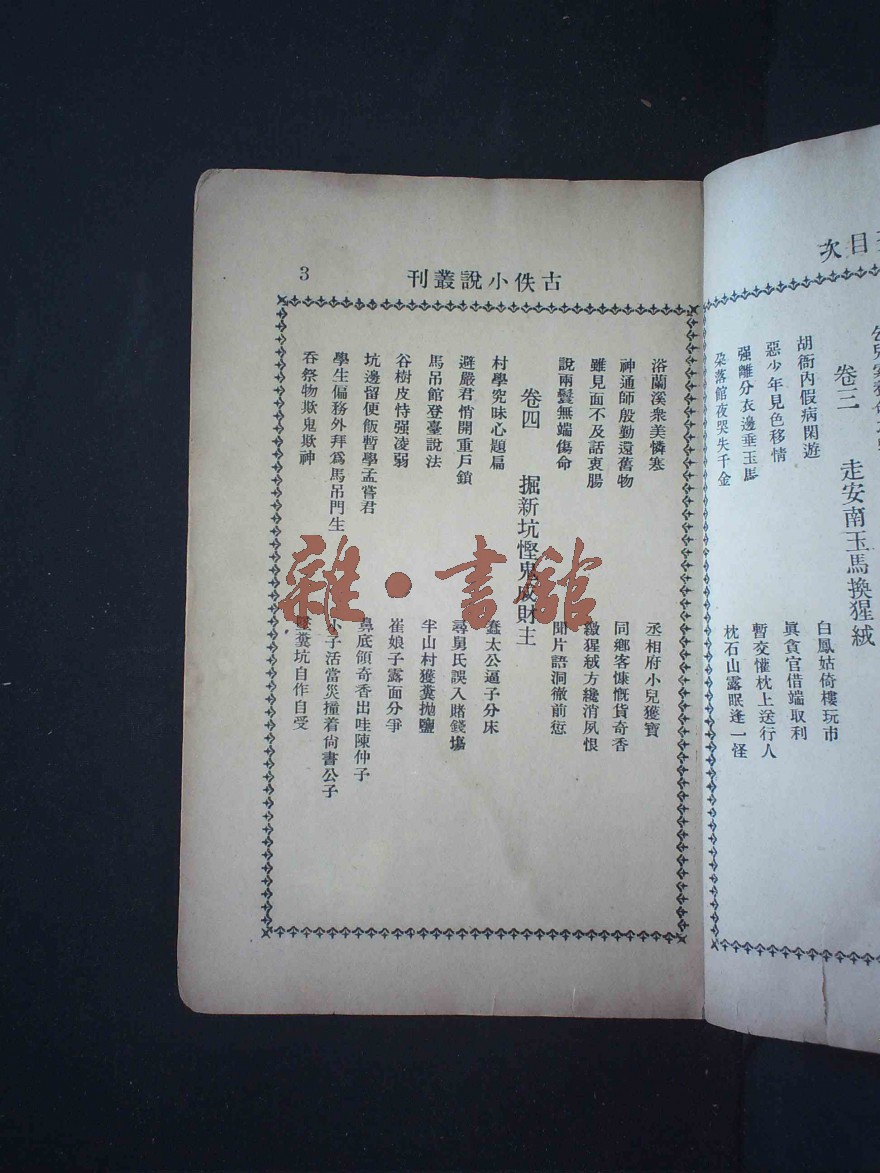 目次
卷三　走安南玉馬換猩絨
胡衙內假病閑遊
白鳳姑倚樓玩市
惡少年見色移情
眞貪官借端取利
强離分衣邊垂玉馬
暫交懽枕上送行人
朶落館夜哭失千金
枕石山露眠逢一怪
古佚小說叢刊
3
浴蘭溪衆美憐寒
丞相府小兒獲寶
神通師殷勤還舊物
同鄉客慷慨貨奇香
雖見面不及話衷腸
繳猩絨方纔消夙恨
說兩鬢無端傷命
聞片語洞徹前愆
卷四　掘新坑慳鬼成財主
村學究昧心題扁
蠢太公逼子分床
避嚴君悄開重戶鎖
尋舅氏誤入賭錢塲
馬吊館登臺說法
半山村獲糞拋鹽
谷樹皮恃强凌弱
崔娘子露面分爭
坑邊留便飯暫學孟嘗君
鼻底領奇香出哇陳仲子
學生偏務外拜爲馬吊門生
小子活當災撞着尙書公子
呑祭物欺鬼欺神
糞坑自作自受
雜·書館